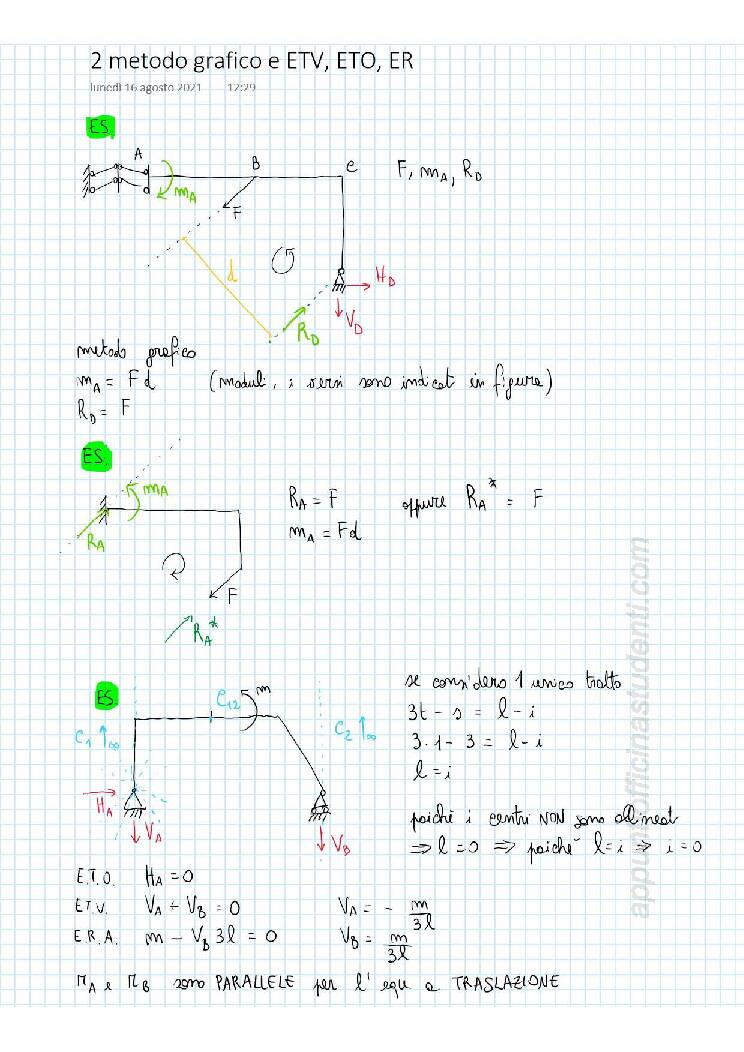 2 metodo grafico e ETV, ETO, ER
lunedì 16 agosto 2021 12:29
ES.
A B C F, mA, RD
mA
F
d
HD
VD
RD
metodo grafico
mA = F d (moduli, i versi sono indicati in figura)
RD = F
ES.
mA RA = F oppure RA* = F
mA = Fd
RA
F
RA*
ES.
se considero 1 unico tratto
C12 m
3t - s = l - i
C1 ↑∞ C2 ↑∞
3·1 - 3 = l - i
l = i
HA
VA VB
poiché i centri NON sono allineati
⇒ l = 0 ⇒ poiché l = i ⇒ i = 0
E.T.O. HA = 0
E.T.V. VA + VB = 0 VA = - m/3l
E.R.A. m - VB 3l = 0 VB = m/3l
rA e rB sono PARALLELE per l' equ a TRASLAZIONE
appuntiofficinastudenti.com